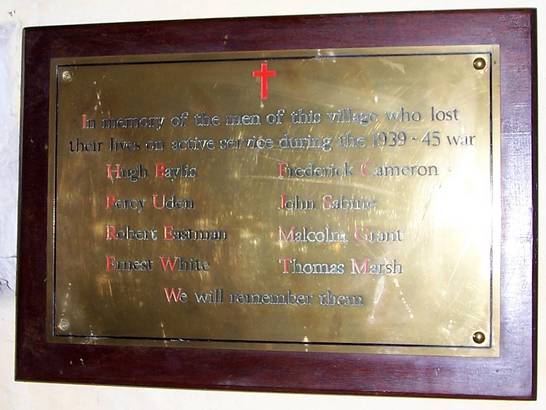 In memory of the men of this village who lost
their lives on active service during the 1939 - 45 war
Hugh Baylis Frederick Cameron
Percy Uden John Sabine
Robert Eastman Malcolm Grant
Ernest White Thomas Marsh
We will remember them